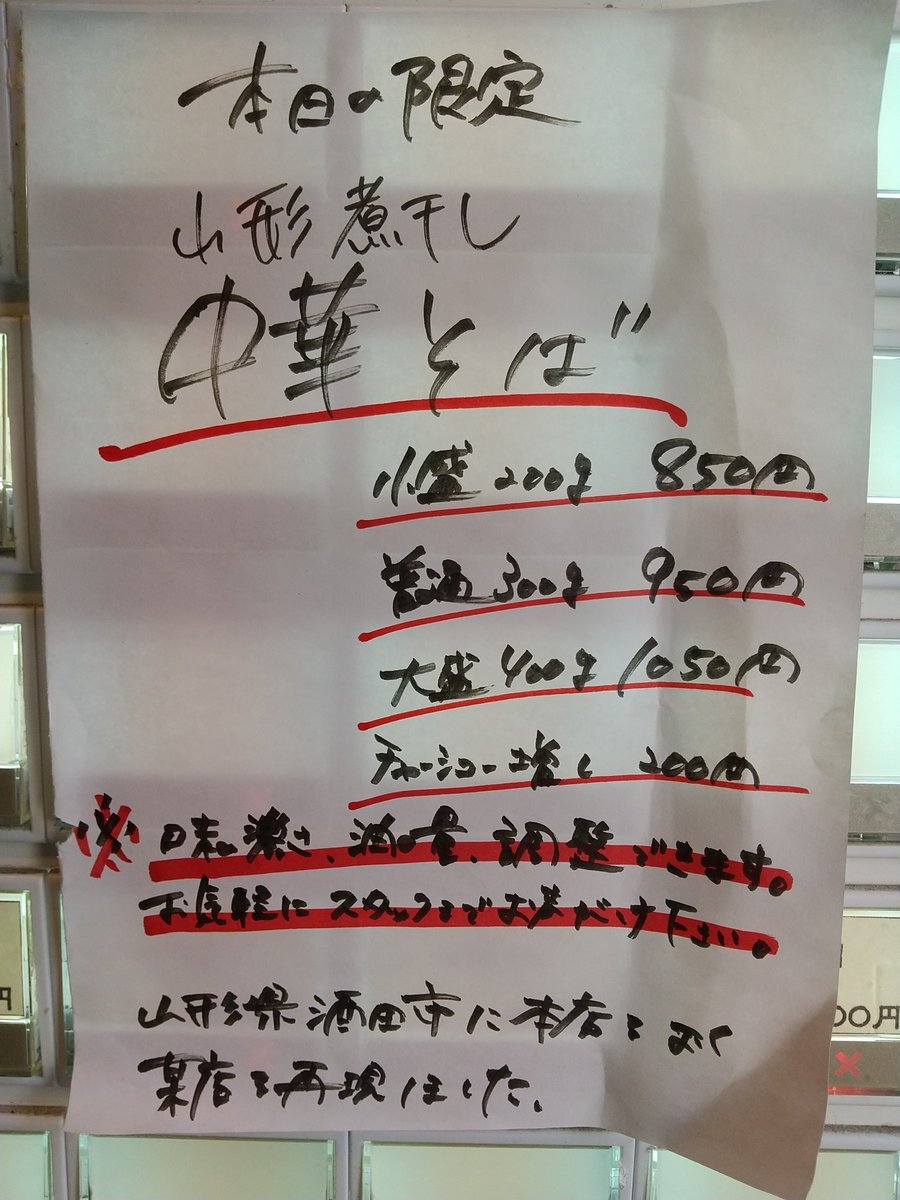 本日の限定
山形煮干し
中華そば
小盛 200g 850円
普通 300g 950円
大盛 400g 1050円
チャーシュー増し 200円
※ 味の濃さ、油の量、調整できます。
お気軽にスタッフまでお声がけ下さい。
山形県酒田市に本店をおく
某店を再現しました。
円
00円
円